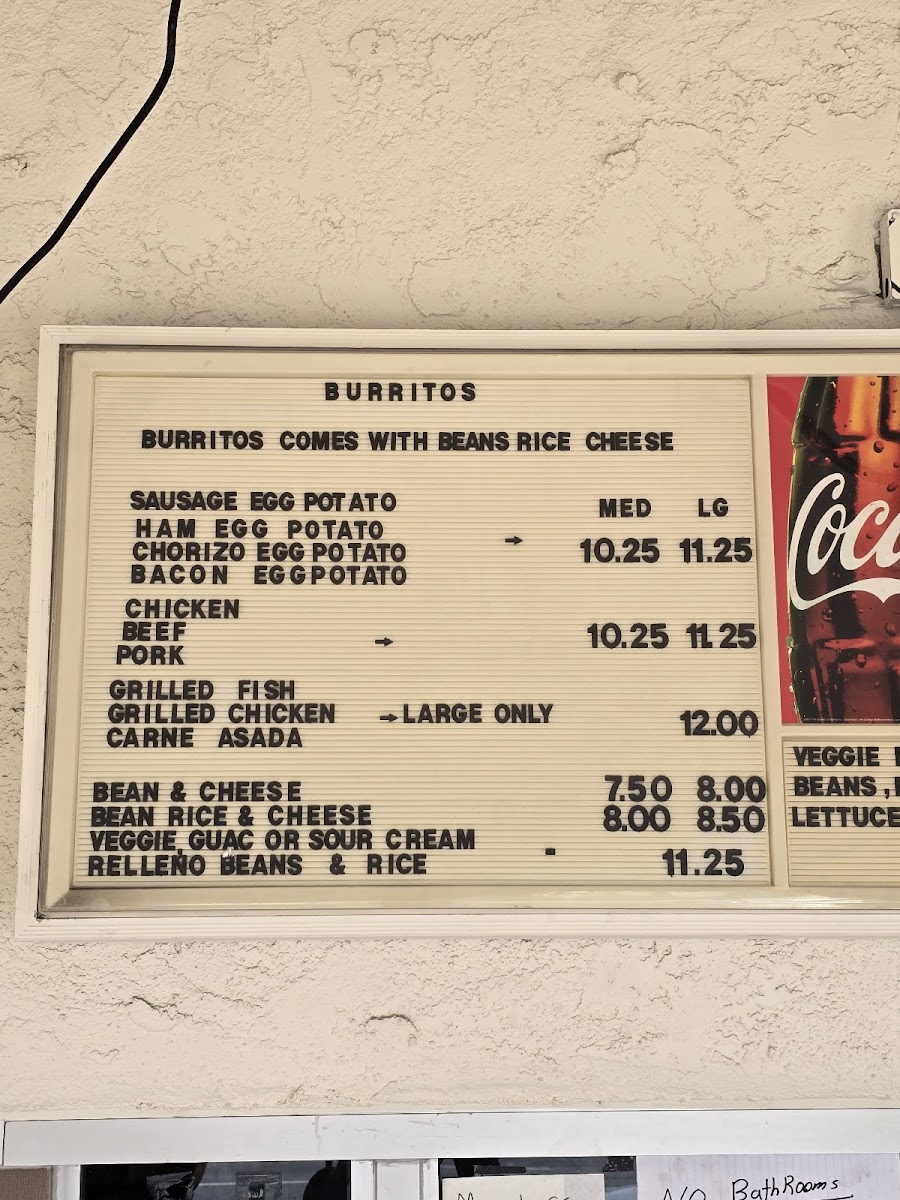 BURRITOS
BURRITOS COMES WITH BEANS RICE CHEESE
SAUSAGE EGG POTATO MED LG
HAM EGG POTATO
CHORIZO EGG POTATO → 10.25 11.25
BACON EGG POTATO
CHICKEN
BEEF → 10.25 11.25
PORK
GRILLED FISH
GRILLED CHICKEN → LARGE ONLY 12.00
CARNE ASADA
BEAN & CHEESE 7.50 8.00
BEAN RICE & CHEESE 8.00 8.50
VEGGIE, GUAC OR SOUR CREAM
RELLENO BEANS & RICE - 11.25
Coca
VEGGIE
BEANS,
LETTUCE
NO BathRooms